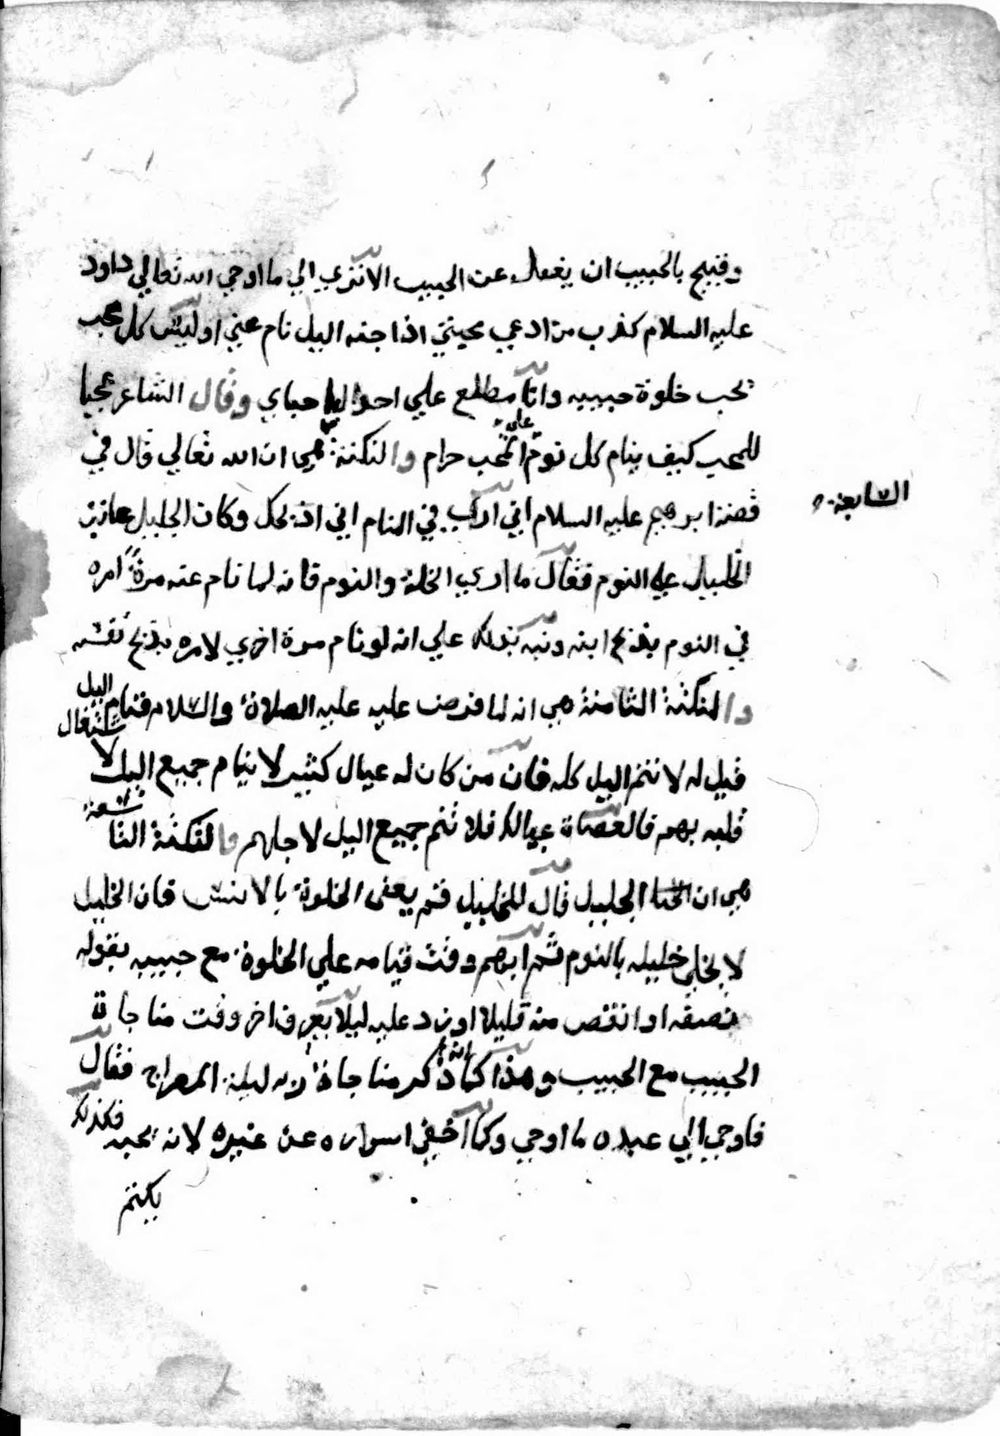 وقبيح بالحبيب ان يغفل عن الحبيب الا تري الي ما اوحي الله تعالي داود
عليه السلام كذب من ادعي محبتي اذا جنه اليل نام عني اوليس كل محب
يحب خلوة حبيبه وانا مطلع علي احبائي وقال الشاعر عجبا
للمحب كيف ينام كل نوم على المحب حرام والنكتة هي ان الله تعالي قال في
السابعة
قصة ابرهيم عليه السلام اني اري في المنام اني اذبحك وكان الجليل عاتب
الخليل علي النوم فقال ما ادري الخلة والنوم فانه لما نام عنه مرة امره
في النوم بذبح ابنه ونبه بذلك علي انه لو نام مرة اخري لامره بذبح نفسه
والنكتة الثامنة هي انه لما فرض عليه عليه الصلاة والسلام قيام اليل
قيل له لا تنم اليل كله فان من كان له عيال كثير لا ينام جميع اليل لاشتغال
قلبه بهم فالعصاة عيالك فلا تنم جميع اليل لاجلهم والنكتة التاسعة
هي ان الجليل قال للخليل قم يعني الخلوة بالانس فان الخليل
لا يخلي خليله بالنوم ثم ابهم وقت قيامه علي الخلوة مع حبيبه بقوله
نصفه او انقص منه قليلا او زد عليه ليلا يعرف اخر وقت مناجاة
الحبيب مع الحبيب وهذا كما انه ذكر مناجاة ليلة المعراج فقال
فاوحي الي عبده ما اوحي وكما اخفي اسراره عن غيره لانه يحبه فكذلك
يكتم